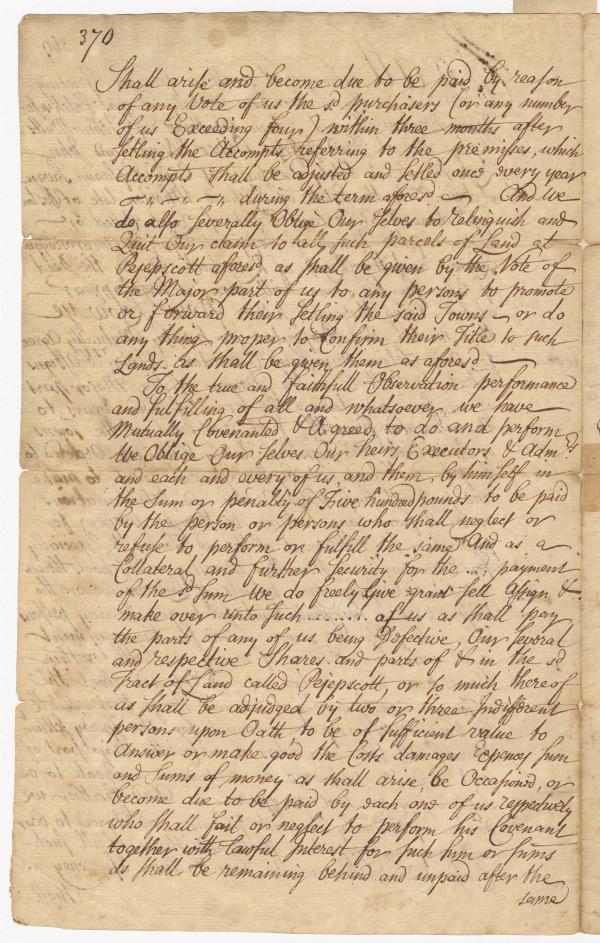 370
Shall arise and become due to be paid by reason
of any Vote of us the sd purchasers (or any number
of us Exceeding four) within three months after
setling the Accompts referring to the premisses, which
Accompts shall be adjusted and setled once every year
during the term aforesd — And we
do also severally Oblige Our selves to relinquish and
Quit Our claim to all such parcels of Land at
Pejepscott aforesd as shall be given by the Vote of
the Major part of us to any persons to promote
or forward their setling the said Towns — or do
any thing proper to Confirm their Title to such
Lands as shall be given them as aforesd —
To the true and faithfull Observation performance
and fulfilling of all and whatsoever we have
Mutually Covenanted & Agreed to do and perform
We Oblige Our selves Our heirs Executors & Admrs
and each and every of us, and them, by himself in
the Sum or penalty of Five hundred pounds to be paid
by the person or persons who shall neglect or
refuse to perform or fulfill the same And as a
Collateral and further Security for the ... payment
of the sd Sum We do freely Give grant sell Assign &
make over unto such ...... of us as shall pay
the parts of any of us being Defective, Our several
and respective Shares and parts of & in the sd
Tract of Land called Pejepscott, or so much thereof
as shall be adjudged by two or three Indifferent
persons upon Oath to be of sufficient value to
Answer or make good the Costs damages Expences sum
and sums of money as shall arise, be Occasioned, or
become due to be paid by each one of us respectively
who shall fail or neglect to perform his Covenant
together with lawful Interest for such sum or sums
as shall be remaining behind and unpaid after the
same